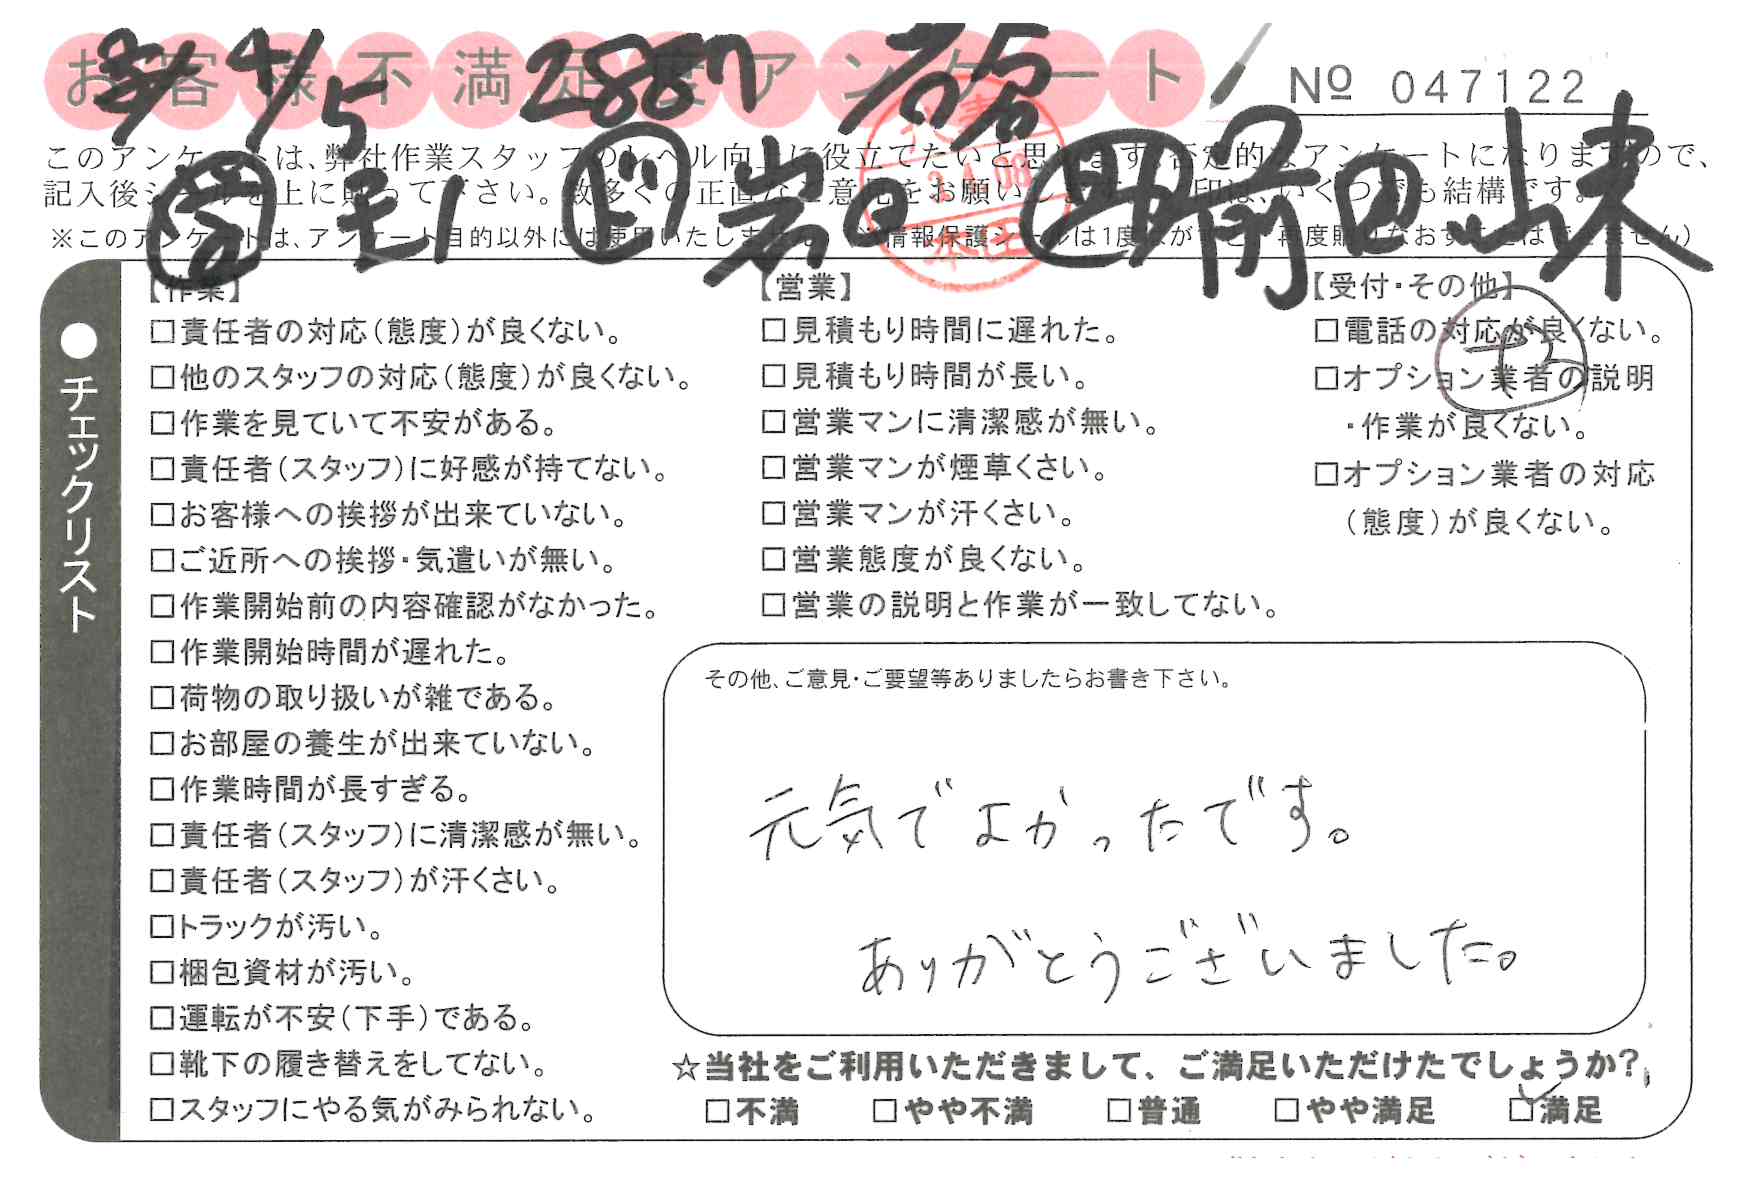 お客様不満足度アンケート
4/5 2887 石倉
№ 047122
このアンケートは、弊社作業スタッフのレベル向上に役立てたいと思います。否定的なアンケートになりますので、
記入後シールを上に貼って下さい。数多くの正直なご意見をお願いします。 印は、いくつでも結構です。
※このアンケートは、アンケート目的以外には使用いたしません。(※情報保護シールは1度はがすと、再度貼りなおすことはできません)
岩日 前の 山末
3.4.08
本田
●チェックリスト
【作業】
□責任者の対応(態度)が良くない。
□他のスタッフの対応(態度)が良くない。
□作業を見ていて不安がある。
□責任者(スタッフ)に好感が持てない。
□お客様への挨拶が出来ていない。
□ご近所への挨拶・気遣いが無い。
□作業開始前の内容確認がなかった。
□作業開始時間が遅れた。
□荷物の取り扱いが雑である。
□お部屋の養生が出来ていない。
□作業時間が長すぎる。
□責任者(スタッフ)に清潔感が無い。
□責任者(スタッフ)が汗くさい。
□トラックが汚い。
□梱包資材が汚い。
□運転が不安(下手)である。
□靴下の履き替えをしてない。
□スタッフにやる気がみられない。
【営業】
□見積もり時間に遅れた。
□見積もり時間が長い。
□営業マンに清潔感が無い。
□営業マンが煙草くさい。
□営業マンが汗くさい。
□営業態度が良くない。
□営業の説明と作業が一致してない。
【受付・その他】
□電話の対応が良くない。
□オプション業者の説明
・作業が良くない。
□オプション業者の対応
(態度)が良くない。
その他、ご意見・ご要望等ありましたらお書き下さい。
元気でよかったです。
ありがとうございました。
☆当社をご利用いただきまして、ご満足いただけたでしょうか?
□不満 □やや不満 □普通 □やや満足 □満足